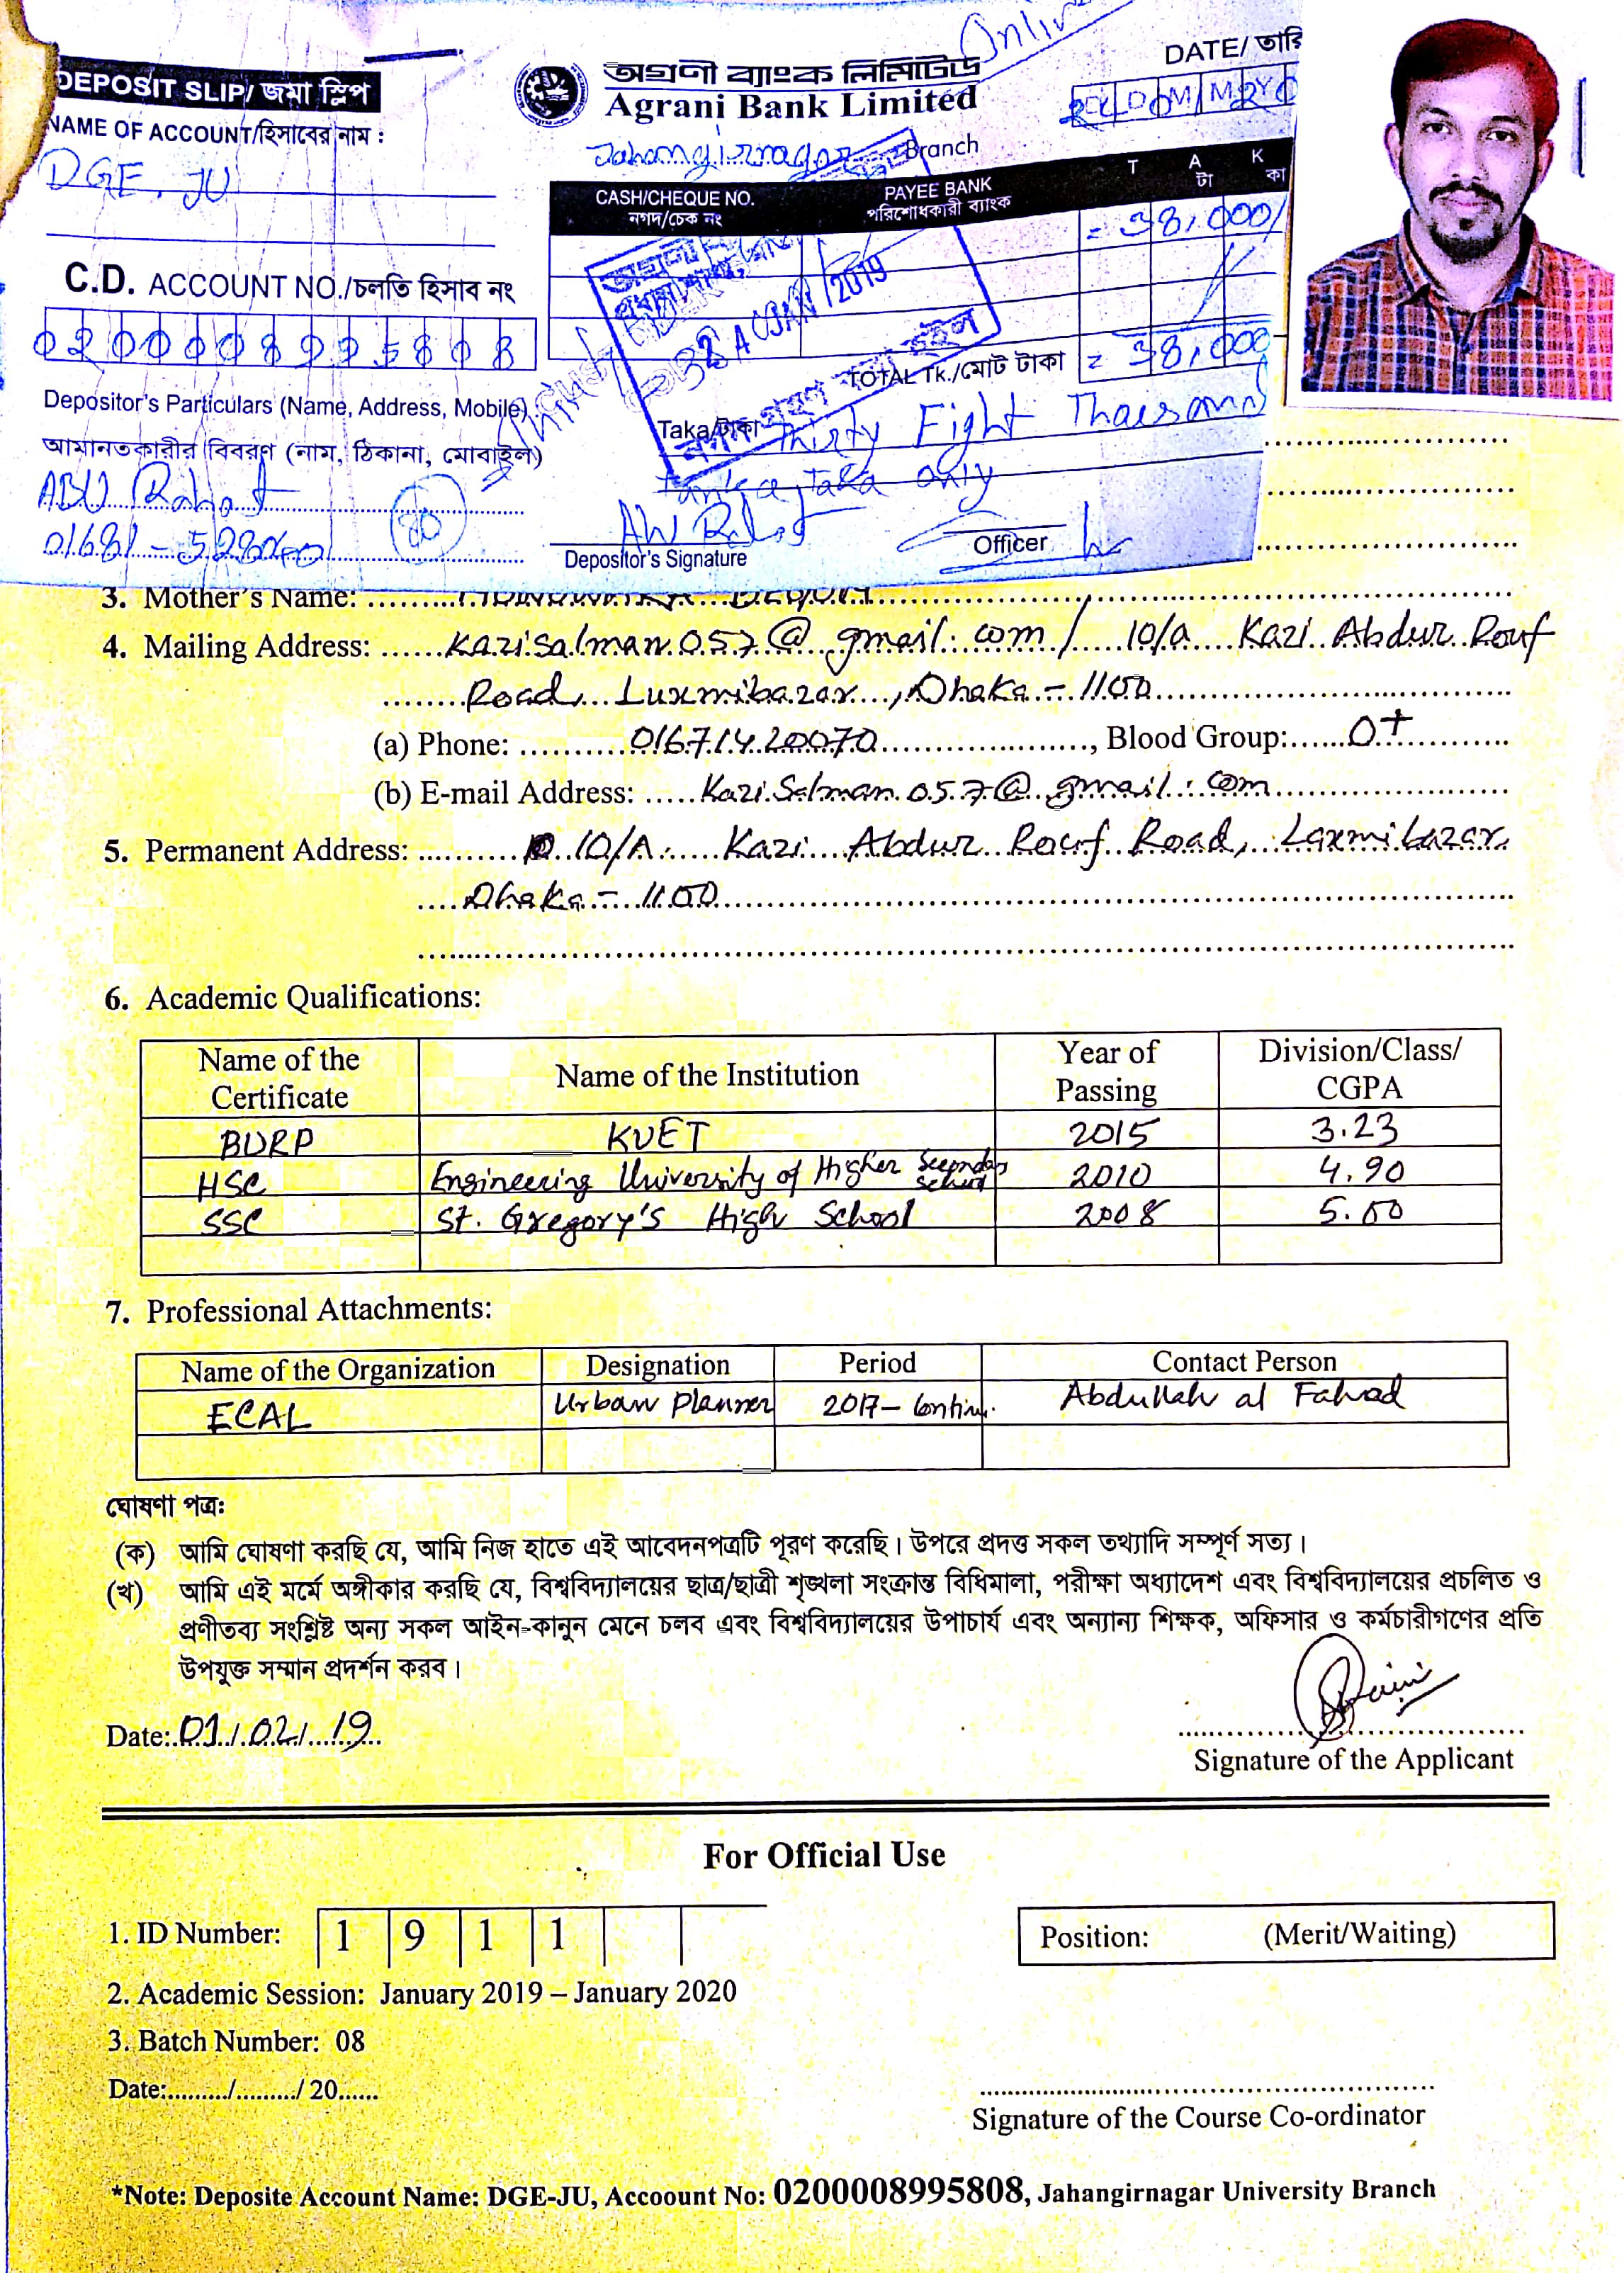 Online
DEPOSIT SLIP/ জমা স্লিপ
অগ্রণী ব্যাংক লিমিটেড
Agrani Bank Limited
DATE/ তারি
NAME OF ACCOUNT/হিসাবের নাম :
DGE, JU
Jahangirnagar Branch
CASH/CHEQUE NO. PAYEE BANK T A K
নগদ/চেক নং পরিশোধকারী ব্যাংক টা কা
= 38,000/
C.D. ACCOUNT NO./চলতি হিসাব নং
0200008995808
JAN 2019
নগদ গ্রহণ করা হইল
TOTAL Tk./মোট টাকা = 38,000
Depositor's Particulars (Name, Address, Mobile)
আমানতকারীর বিবরণ (নাম, ঠিকানা, মোবাইল)
Taka/টাকা Thirty Eight Thausand
taka only
ABU Rahat
01681-
Depositor's Signature
Officer
3. Mother's Name:
4. Mailing Address: Kazisalman057@gmail.com / 10/a Kazi Abdur Rouf
Road, Luxmibazar, Dhaka - 1100
(a) Phone: 01671420070, Blood Group: O+
(b) E-mail Address: Kazi.Salman057@gmail.com
5. Permanent Address: 10/A. Kazi Abdur Rouf Road, Laxmibazar,
Dhaka - 1100
6. Academic Qualifications:
Name of the Certificate Name of the Institution Year of Passing Division/Class/ CGPA
BURP KUET 2015 3.23
HSC Engineering University of Higher Secondary School 2010 4.90
SSC St. Gregory's High School 2008 5.00
7. Professional Attachments:
Name of the Organization Designation Period Contact Person
ECAL Urban Planner 2017- Contin. Abdullah al Fahad
ঘোষণা পত্র:
(ক) আমি ঘোষণা করছি যে, আমি নিজ হাতে এই আবেদনপত্রটি পূরণ করেছি। উপরে প্রদত্ত সকল তথ্যাদি সম্পূর্ণ সত্য।
(খ) আমি এই মর্মে অঙ্গীকার করছি যে, বিশ্ববিদ্যালয়ের ছাত্র/ছাত্রী শৃঙ্খলা সংক্রান্ত বিধিমালা, পরীক্ষা অধ্যাদেশ এবং বিশ্ববিদ্যালয়ের প্রচলিত ও
প্রণীতব্য সংশ্লিষ্ট অন্য সকল আইন-কানুন মেনে চলব এবং বিশ্ববিদ্যালয়ের উপাচার্য এবং অন্যান্য শিক্ষক, অফিসার ও কর্মচারীগণের প্রতি
উপযুক্ত সম্মান প্রদর্শন করব।
Date: 01/02/19
Signature of the Applicant
For Official Use
1. ID Number: 1 9 1 1
Position: (Merit/Waiting)
2. Academic Session: January 2019 – January 2020
3. Batch Number: 08
Date:........./........./ 20......
Signature of the Course Co-ordinator
*Note: Deposite Account Name: DGE-JU, Accoount No: 0200008995808, Jahangirnagar University Branch